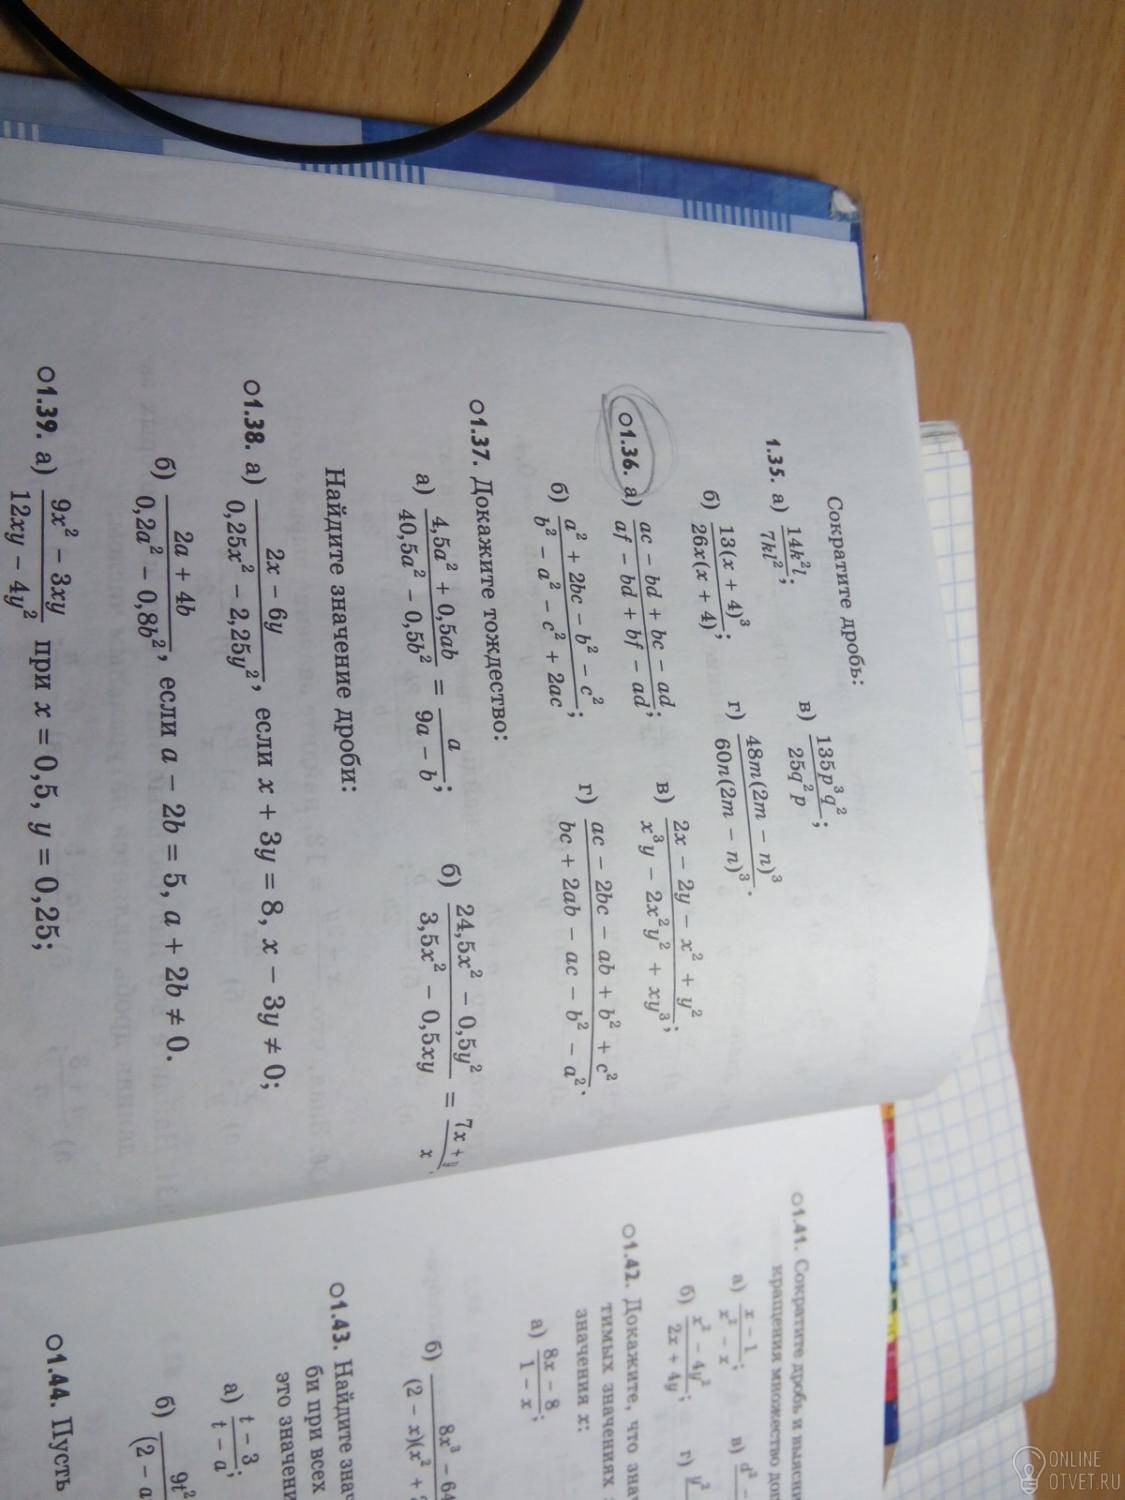 Сократите дробь:
1.35. а) 14k²l / 7kl²; в) 135p³q² / 25q²p;
б) 13(x + 4)³ / 26x(x + 4); г) 48m(2m − n)³ / 60n(2m − n)³.
○1.36. а) ac − bd + bc − ad / af − bd + bf − ad; в) 2x − 2y − x² + y² / x³y − 2x²y² + xy³;
б) a² + 2bc − b² − c² / b² − a² − c² + 2ac; г) ac − 2bc − ab + b² + c² / bc + 2ab − ac − b² − a².
○1.37. Докажите тождество:
а) 4,5a² + 0,5ab / 40,5a² − 0,5b² = a / 9a − b; б) 24,5x² − 0,5y² / 3,5x² − 0,5xy = 7x + y / x
Найдите значение дроби:
○1.38. а) 2x − 6y / 0,25x² − 2,25y², если x + 3y = 8, x − 3y ≠ 0;
б) 2a + 4b / 0,2a² − 0,8b², если a − 2b = 5, a + 2b ≠ 0.
○1.39. а) 9x² − 3xy / 12xy − 4y² при x = 0,5, y = 0,25;
○1.41. Сократите дробь и выясни
кращения множество доп
а) x − 1 / x² − x; в) d² −
б) x² − 4y² / 2x + 4y; г) y²
○1.42. Докажите, что зна
тимых значениях
значения x:
а) 8x − 8 / 1 − x;
б) 8x³ − 64 / (2 − x)(x² +
○1.43. Найдите знач
би при всех
это значени
а) t − 3 / t − a;
б) 9t² / (2 − a
○1.44. Пусть
ONLINE
OTVET.RU